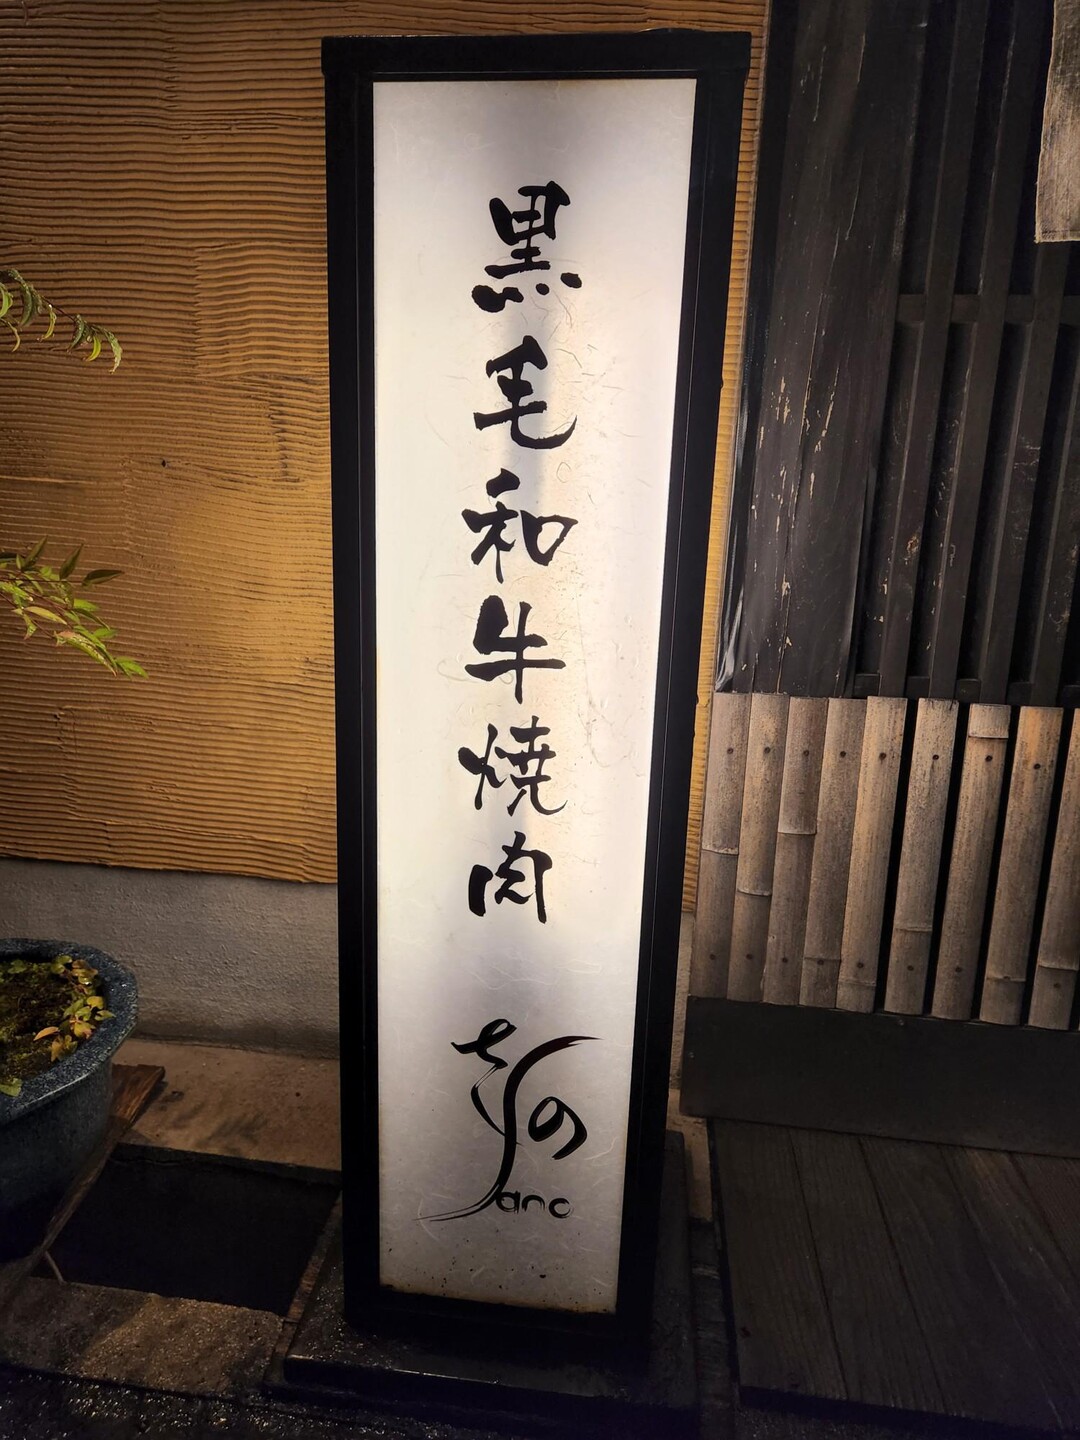 黒毛和牛焼肉
さの
Sano